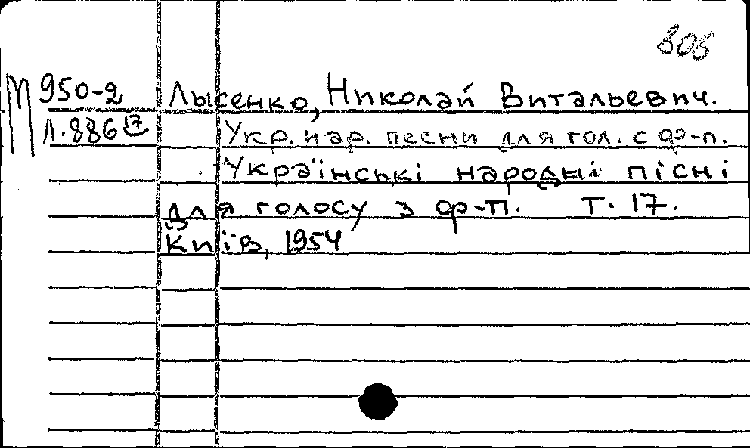 805
М 950-2 Лысенко, Николай Витальевич.
Л.886 Укр. нар. песни для гол. с ф-п.
Українські народні пісні
для голосу з ф-п. Т. 17.
Київ, 1954